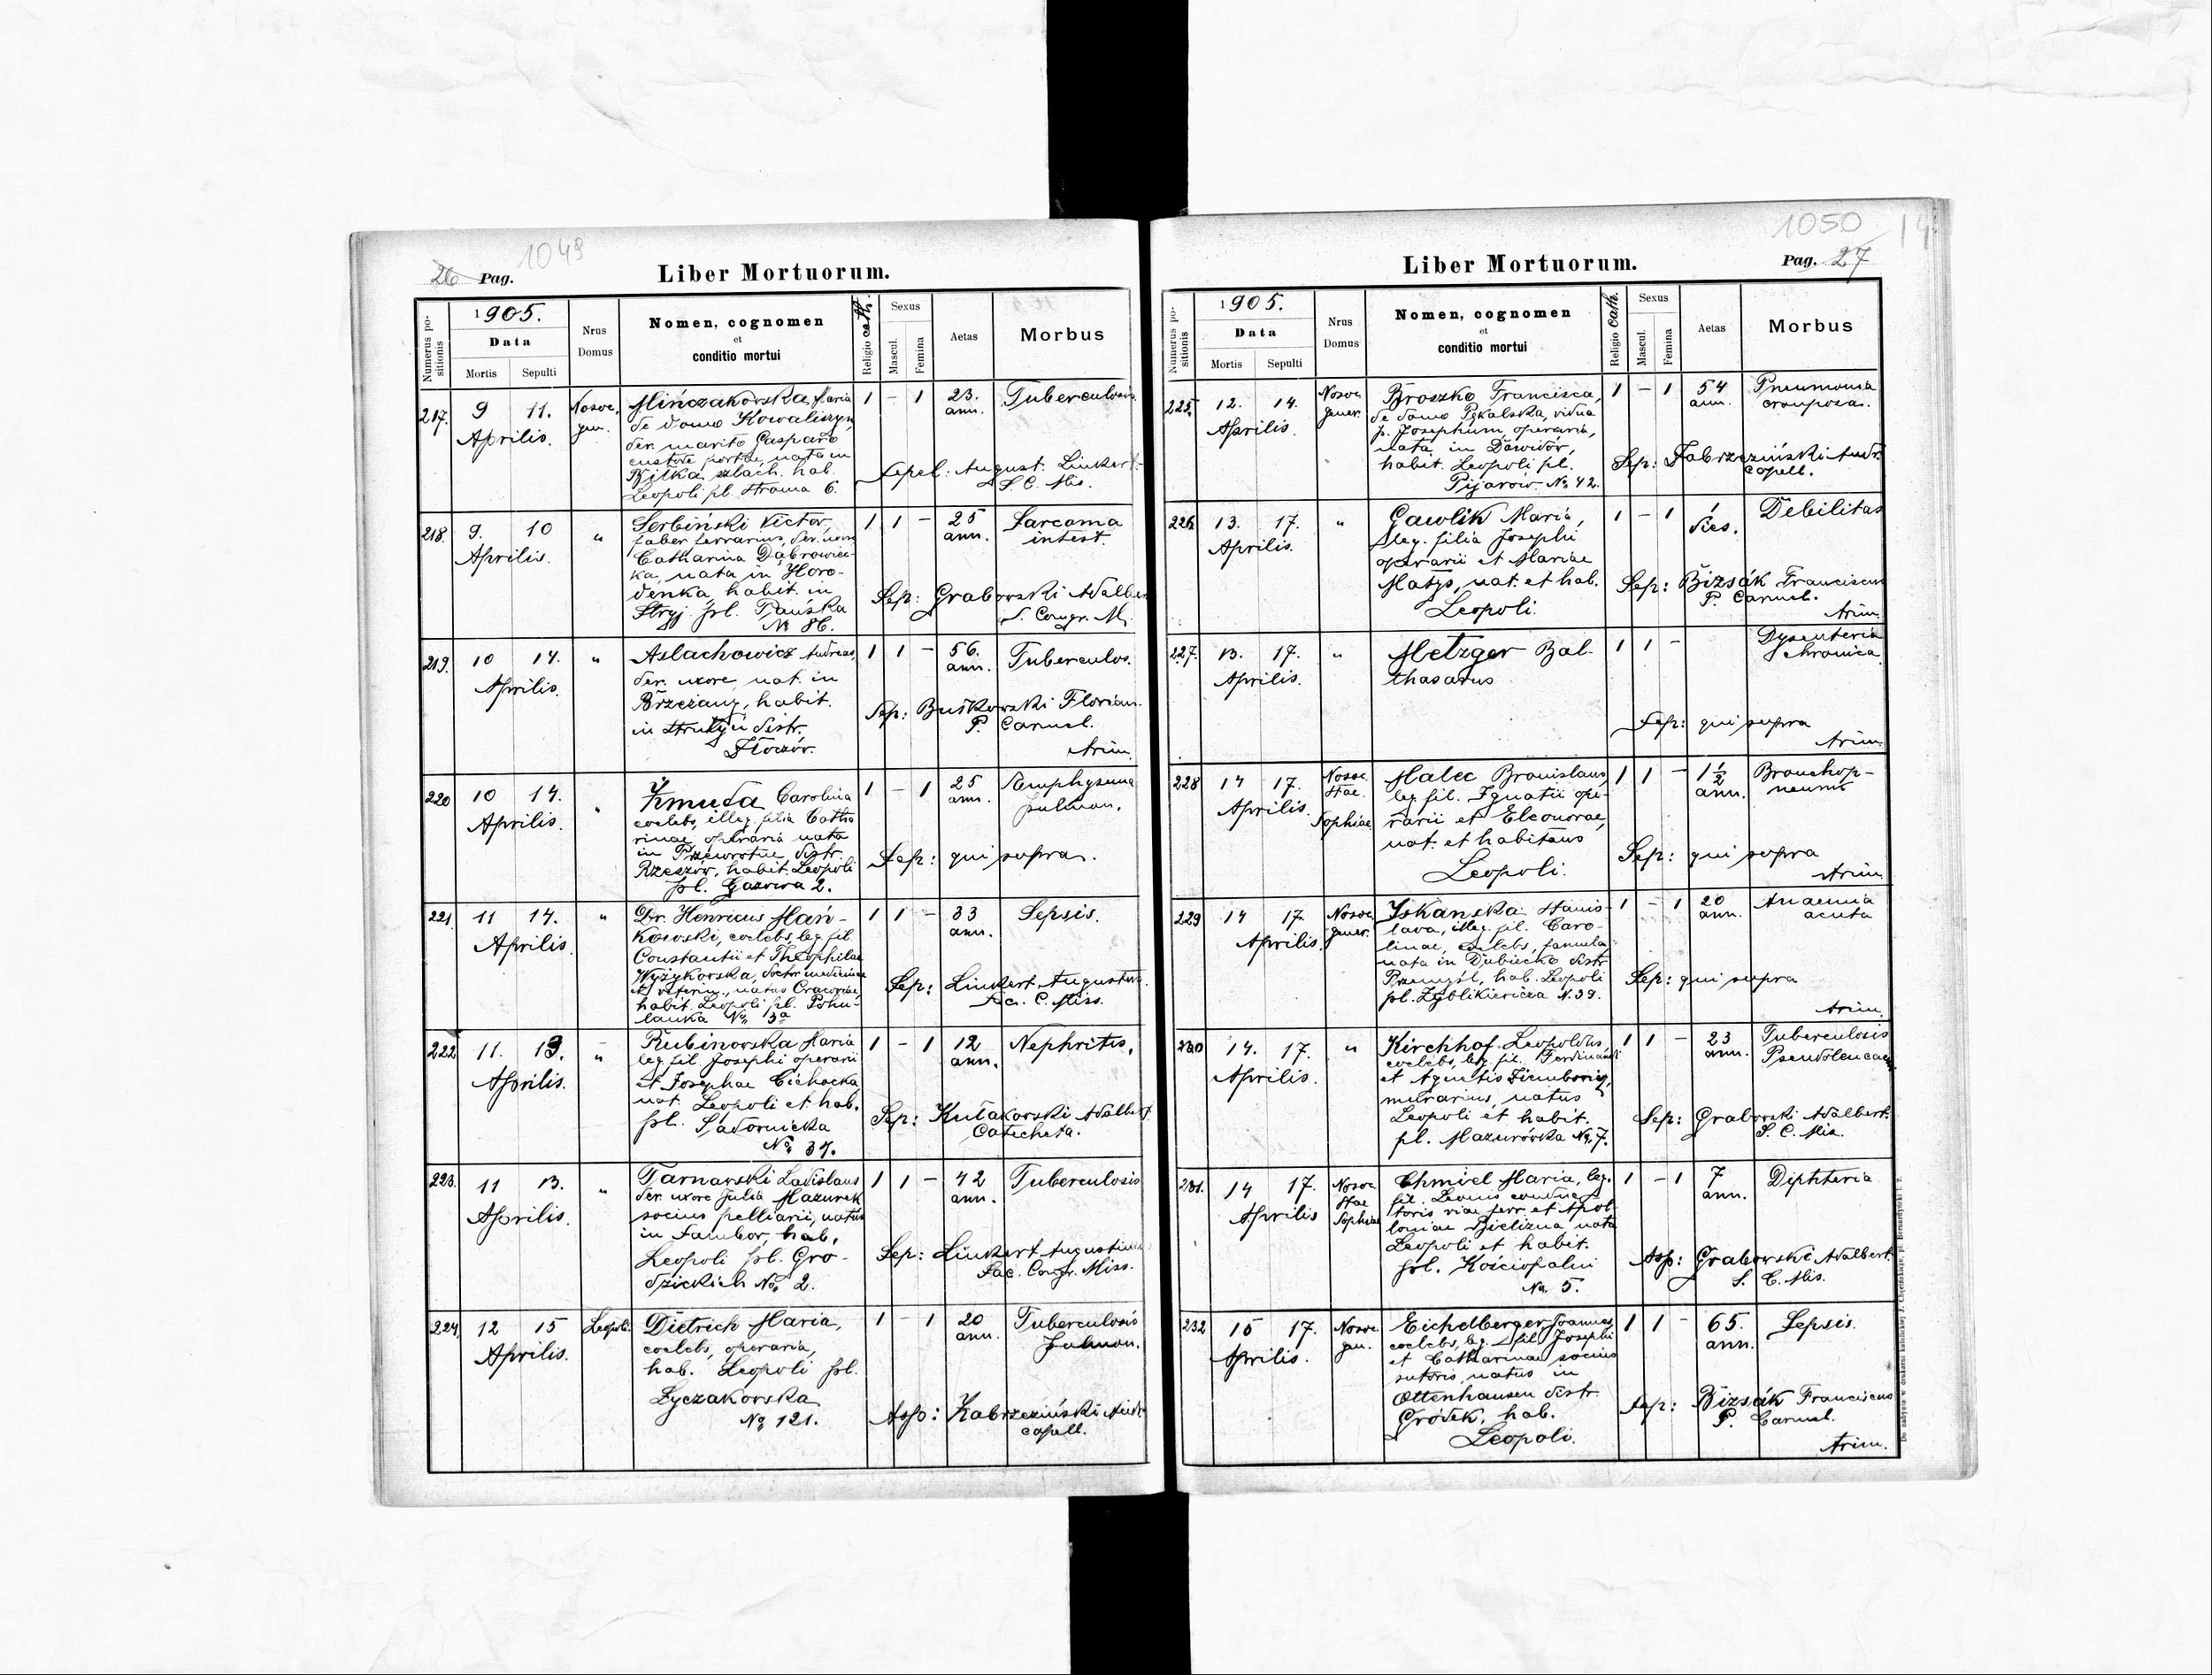 1049
26 Pag.
Liber Mortuorum.
Numerus positionis
1905.
Data
Mortis
Sepulti
Nrus Domus
Nomen, cognomen
et
conditio mortui
Religio cath.
Sexus
Mascul.
Femina
Aetas
Morbus
217. 9 11. Aprilis. Nosoc. gen.
Mińczakowska Maria
de domo Kowaliszyn,
der. marito Gasparo
custode portae, nata in
Biłka szlach. hab.
Leopoli pl. Stroma 6.
1 - 1 23. ann. Tuberculosis
Sepel: August. Linkert
S. C. Mis.
218. 9. 10 Aprilis. "
Serbiński Victor,
faber ferrarius, der. uxore
Catharina Dąbrowiec-
ka, nata in Horo-
denka, habit. in
Stryj pl. Pańska
№ 86.
1 1 - 25 ann. Sarcoma
intest.
Sep: Grabowski Adalber
S. Congr. M.
219. 10 14. Aprilis. "
Aslachowicz Andreas,
der. uxore, nat. in
Brzeżany, habit.
in Strutyń distr.
Złoczów.
1 1 - 56. ann. Tuberculos.
Sep: Buśkowski Florian.
P. Carmel.
Arim.
220 10 14. Aprilis. "
Żmuda Carolina
coelebs, illeg. filia Catha
rinae, operaria nata
in Przewrotne distr.
Rzeszów, habit. Leopoli
pl. Gazowa 2.
1 - 1 25 ann. Aemphysema
pulmon.
Sep: qui supra.
221. 11 14. Aprilis "
Dr. Henricus Mań-
kowski, coelebs, leg. fil.
Constantii et Theophilae
Wyżykowska, doctor medicinae
et veterin., natus Cracoviae,
habit. Leopoli pl. Pohu-
lanka № 3a
1 1 - 33 ann. Sepsis.
Sep: Linkert Augustus.
Sac. C. Miss.
222 11. 13. Aprilis. "
Rubinowska Maria
leg. fil. Josephi operarii
et Josephae Cichocka,
nat. Leopoli et hab.
pl. Sadownicka
№ 37.
1 - 1 12 ann. Nephritis.
Sep: Kułakowski Adalbert
Catecheta.
223. 11 13. Aprilis. "
Tarnawski Ladislaus
der. uxore Julia Mazurek
socius pelliarii, natus
in Sambor, hab.
Leopoli pl. Gro-
dzickich № 2.
1 1 - 42 ann. Tuberculosis
Sep: Linkert Augustinus
Sac. Congr. Miss.
224. 12 15 Aprilis. Leopoli.
Dietrich Maria,
coelebs, operaria,
hab. Leopoli pl.
Łyczakowska
№ 121.
1 - 1 20 ann. Tuberculosis
Pulmon.
Assp: Zabrzeziński Andr.
capell.
1050
14
Liber Mortuorum.
Pag. 27
Numerus positionis
1905.
Data
Mortis
Sepulti
Nrus Domus
Nomen, cognomen
et
conditio mortui
Religio cath.
Sexus
Mascul.
Femina
Aetas
Morbus
225. 12. 14. Aprilis. Nosoc. gener.
Broszko Francisca,
de domo Pękalska, vidua
p. Josephum, operaria,
nata in Dawidów,
habit. Leopoli pl.
Pijarów. № 42.
1 - 1 54 ann. Pneumonia
crouposa.
Sep: Zabrzeziński Andr.
capell.
226. 13. 17. Aprilis. "
Gawlik Maria,
leg. filia Josephi
operarii et Mariae
Matys, nat. et hab.
Leopoli.
1 - 1 1 dies. Debilitas
Sep: Bizsák Franciscus
P. Carmel.
Arim.
227. 13. 17. Aprilis. "
Metzger Bal-
thasarus
1 1 - Dysenteria
chronica.
Sep: qui supra
Arim.
228 14 17. Aprilis. Nosoc. Stae. Sophiae
Malec Bronislaus,
leg. fil. Ignatii ope-
rarii et Eleonorae,
nat. et habitans
Leopoli.
1 1 - 1 1/2 ann. Bronchop-
neum
Sep: qui supra
Arim.
229 14 17. Aprilis. Nosoc. gener.
Iskanska Stanis-
lava, illeg. fil. Caro-
linae, coelebs, famula,
nata in Dubiecko distr.
Przemyśl, hab. Leopoli
pl. Zyblikiewicza № 39.
1 - 1 20 ann. Anaemia
acuta
Sep: qui supra
Arim.
230 14. 17. Aprilis. "
Kirchhof Leopoldus,
coelebs, leg. fil. Ferdinandi
et Agnetis
murarius, natus
Leopoli et habit.
pl. Mazurówka № 7.
1 1 - 23 ann. Tuberculosis
Sep: Grabowski Adalbert.
S. C. Mis.
231. 14 17. Aprilis Nosoc. Stae Sophiae
Chmiel Maria, leg.
fil. Leonis conduc-
toris viae ferr. et Apol-
loniae Bielizna, nata
Leopoli et habit.
pl. Kościopalni
№ 5.
1 - 1 7 ann. Diphteria
Assp: Grabowski Adalbert.
S. C. Mis.
232 15 17. Aprilis. Nosoc. gen.
Eichelberger Joannes,
coelebs, leg. fil. Josephi
et Catharinae socius
sutoris, natus in
Ottenhausen distr.
Gródek, hab.
Leopoli.
1 1 - 65. ann. Sepsis.
Sep: Bizsák Franciscus
P. Carmel.
Arim.